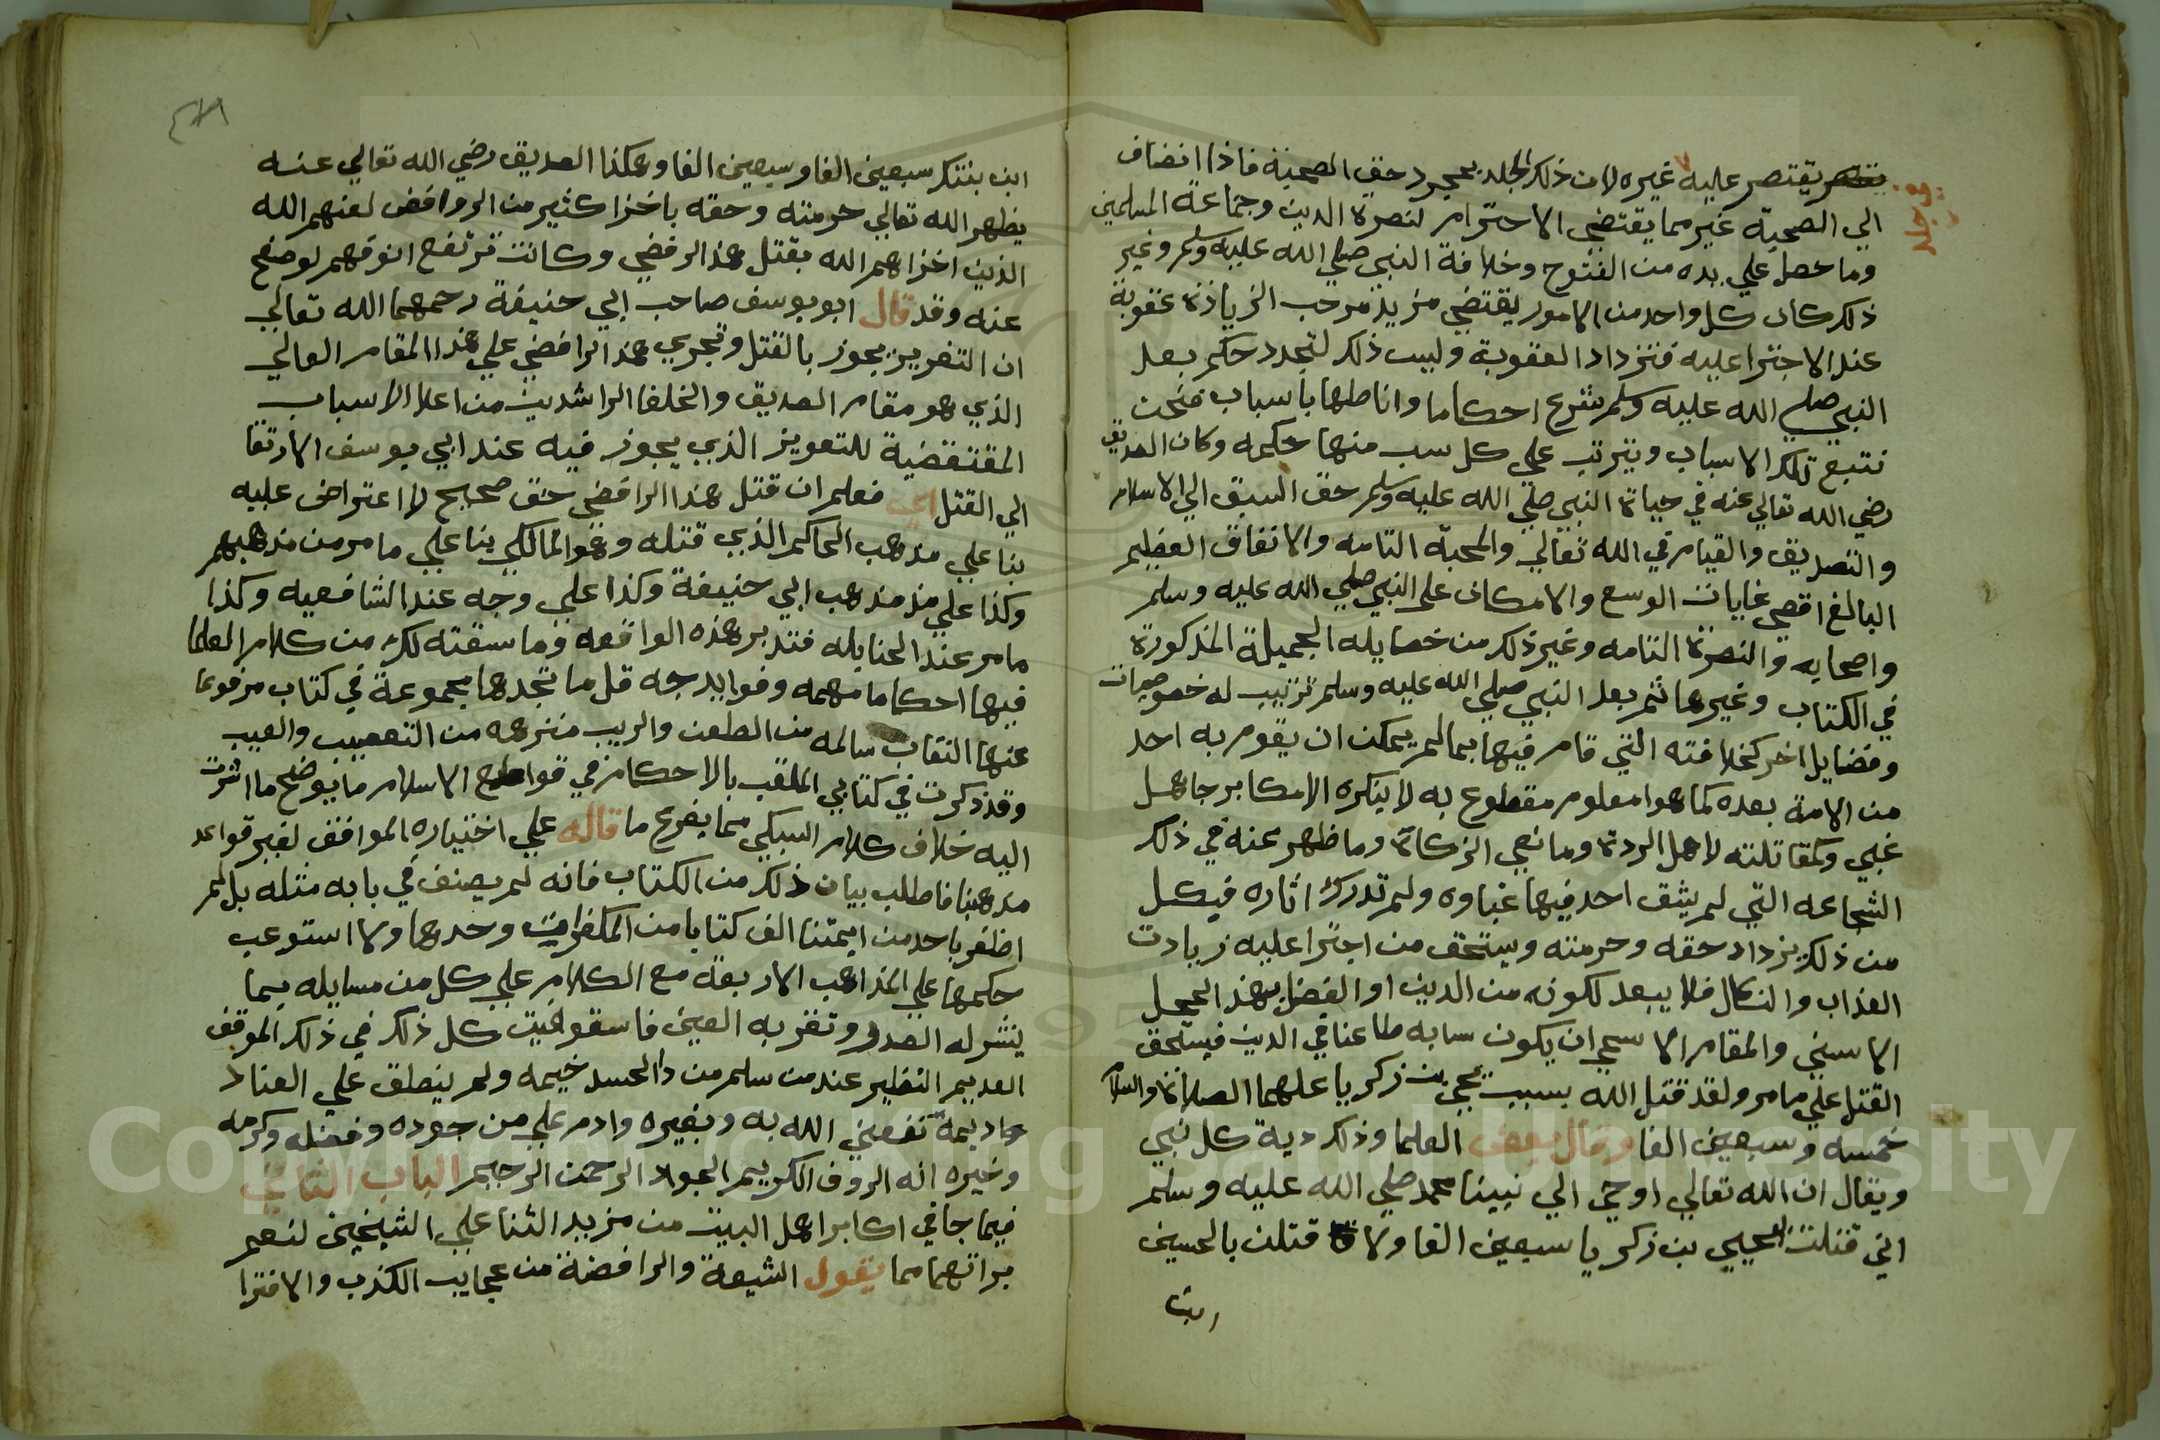 يقتصر عليه غيره لان ذلك الجلد بمجرد حق الصحبة فاذا انضاف
يوجلد
الي الصحبة غير مما يقتضي الاحترام لنصرة الدين وجماعة المسلمين
وما حصل علي يده من الفتوح وخلافة النبي صلي الله عليه وسلم وغير
ذلك كان كل واحد من الامور يقتضي مزيد موجب الزيادة عقوبة
عند الاجترا عليه فتزداد العقوبة وليس ذلك لتجدد حكم بعد
النبي صلي الله عليه وسلم شرع احكاما واناطها باسباب فنحن
نتبع تلك الاسباب ويترتب علي كل سبب منها حكمه وكان الصديق
رضي الله تعالي عنه في حياة النبي صلي الله عليه وسلم حق السبق الي الاسلام
والتصديق والقيام في الله تعالي والمحبة التامه والانفاق العظيم
البالغ اقصي غايات الوسع والامكان علي النبي صلي الله عليه وسلم
واصحابه والنصرة التامه وغير ذلك من خصايله الجميلة المذكورة
في الكتاب وغيرها ثم بعد النبي صلي الله عليه وسلم ترتيب له خصوصيات
وفضايل اخر كخلافته التي قام فيها بما لم يمكن ان يقوم به احد
من الامة بعده كما هو معلوم مقطوع به لا ينكره الا مكابر جاهل
غبي وكمقاتلته لاهل الردة ومانعي الزكاة وما ظهر عنه في ذلك
الشجاعه التي لم يشق احد فيها غباره ولم تدرك اثاره فبكل
من ذلك يزداد حقه وحرمته ويستحق من اجترا عليه زيادت
العذاب والنكال فلا يبعد لكونه من الدين او الفضل بهذا المحل
الاسني والمقام الاسمي ان يكون سابه طاعنا في الدين فيستحق
القتل علي مامر ولقد قتل الله بسبب يحيي بن زكريا عليهما الصلاة والسلام
خمسه وسبعين الفا وقال بعض العلما وذلك دية كل نبي
ويقال ان الله تعالي اوحي الي نبينا محمد صلي الله عليه وسلم
اني قتلت بيحيي بن زكريا سبعين الفا ولا قتلن بالحسين
ابن
ابن بنتك سبعين الفا وسبعين الفا وهكذا الصديق رضي الله تعالي عنه
يظهر الله تعالي حرمته وحقه باخزا كثير من الروافض لعنهم الله
الذين اخزاهم الله بقتل هذا الرفضي وكانت ترتفع انوفهم لو صفح
عنه وقد قال ابو يوسف صاحب ابي حنيفة رحمهما الله تعالي
ان التعزير يجوز بالقتل وتجري هذا الرافضي علي هذا المقام العالي
الذي هو مقام الصديق والخلفا الراشدين من اعلا الاسباب
المقتقضية للتعزير الذي يجوز فيه عند ابي يوسف الارتقا
الي القتل فعلم ان قتل هذا الرافضي حق صحيح لا اعتراض عليه
بنا علي مذهب الحاكم الذي قتله وهو المالكي بنا علي مامر من مذهبهم
وكذا علي مذهب ابي حنيفة وكذا علي وجه عند الشافعيه وكذا
مامر عند الحنابله فتدبر هذه الواقعه وما سقته لك من كلام العلما
فيها احكاما مهمه وفوايد جه قل ما تجدها مجموعة في كتاب مرفوعا
عنها النقاب سالمه من الطعن والريب منزهه من التعصيب والعيب
وقد ذكرت في كتابي الملقب بالاحكام في قواطع الاسلام ما يوضح ما اشرت
اليه خلاف كلام السبكي مما يفرع ما قاله علي اختياره الموافق لغير قواعد
مذهبنا فاطلب بيان ذلك من الكتاب فانه لم يصنف في بابه مثله بل لم
اظفر باحد من ايمتنا الف كتابا من المكفرات وحدها ولا استوعب
حكمها علي المذاهب الاربعة مع الكلام علي كل من مسايله بما
ينشر له الصدر وتقر به العين فاستوفيت كل ذلك في ذلك الموقف
العديم النظير عند من سلم من دا الحسد خيمه ولم ينطلق علي العناد
نفعني الله به وبغيره وادم علي من جوده وفضله وكرمه
وخيره انه الروف الكريم الجواد الرحمن الرحيم الباب الثاني
فيما جا في اكابر اهل البيت من مزيد الثنا علي الشيخين لنعم
براتهما مما يقول الشيعة والرافضة من عجايب الكذب والافترا